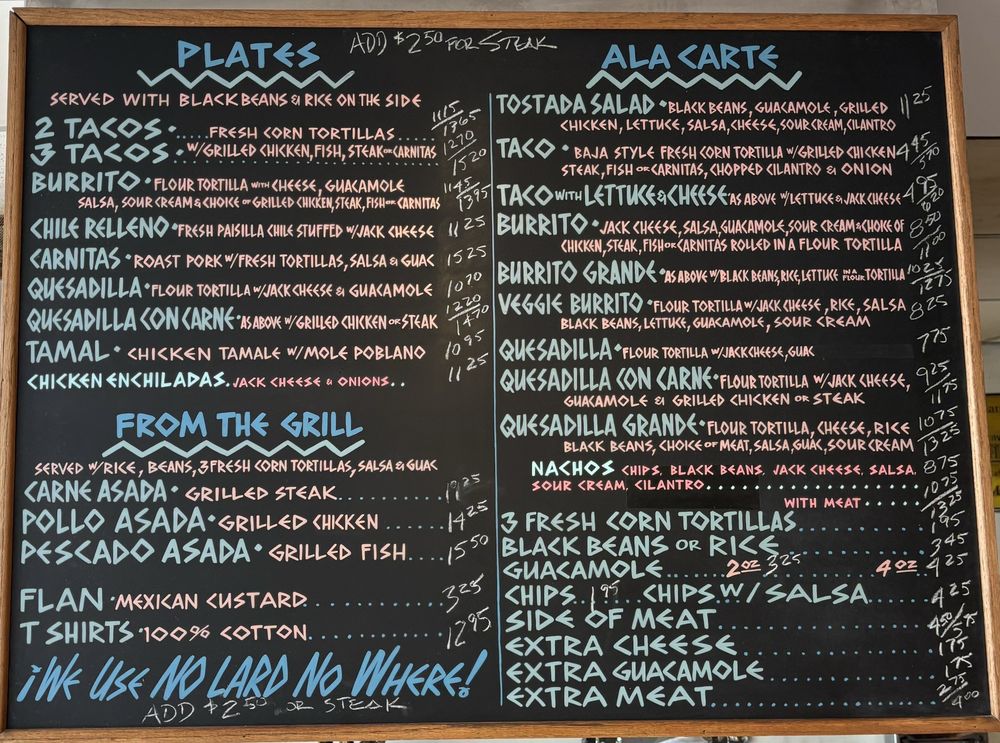 ADD $2 50 FOR STEAK
PLATES
SERVED WITH BLACK BEANS & RICE ON THE SIDE
2 TACOS • ..... FRESH CORN TORTILLAS ..... 11 15 / 13 65
3 TACOS • W/GRILLED CHICKEN, FISH, STEAK OR CARNITAS 12 70 / 15 20
BURRITO • FLOUR TORTILLA WITH CHEESE, GUACAMOLE 11 45 / 13 95
SALSA, SOUR CREAM & CHOICE OF GRILLED CHICKEN, STEAK, FISH OR CARNITAS
CHILE RELLENO • FRESH PAISILLA CHILE STUFFED W/JACK CHEESE 11 25
CARNITAS • ROAST PORK W/FRESH TORTILLAS, SALSA & GUAC 15 25
QUESADILLA • FLOUR TORTILLA W/JACK CHEESE & GUACAMOLE 10 70
QUESADILLA CON CARNE • AS ABOVE W/GRILLED CHICKEN OR STEAK 12 20 / 14 70
TAMAL • CHICKEN TAMALE W/MOLE POBLANO 10 95
CHICKEN ENCHILADAS. JACK CHEESE & ONIONS. . 11 25
FROM THE GRILL
SERVED W/RICE, BEANS, 3 FRESH CORN TORTILLAS, SALSA & GUAC
CARNE ASADA • GRILLED STEAK ..... 25
POLLO ASADA • GRILLED CHICKEN ..... 14 25
PESCADO ASADA • GRILLED FISH ..... 15 50
FLAN • MEXICAN CUSTARD ..... 3 25
T SHIRTS • 100% COTTON ..... 12 95
¡WE USE NO LARD NO WHERE!
ADD $2 50 OR STEAK
ALA CARTE
TOSTADA SALAD • BLACK BEANS, GUACAMOLE, GRILLED 11 25
CHICKEN, LETTUCE, SALSA, CHEESE, SOUR CREAM, CILANTRO
TACO • BAJA STYLE FRESH CORN TORTILLA W/GRILLED CHICKEN 4 45 / 5 70
STEAK, FISH OR CARNITAS, CHOPPED CILANTRO & ONION
TACO WITH LETTUCE & CHEESE • AS ABOVE W/LETTUCE & JACK CHEESE 4 95 / 6 20
BURRITO • JACK CHEESE, SALSA, GUACAMOLE, SOUR CREAM & CHOICE OF 8 50 / 11 00
CHICKEN, STEAK, FISH OR CARNITAS ROLLED IN A FLOUR TORTILLA
BURRITO GRANDE • AS ABOVE W/BLACK BEANS, RICE, LETTUCE IN A FLOUR TORTILLA 10 25 / 12 75
VEGGIE BURRITO • FLOUR TORTILLA W/JACK CHEESE, RICE, SALSA 8 25
BLACK BEANS, LETTUCE, GUACAMOLE, SOUR CREAM
QUESADILLA • FLOUR TORTILLA W/JACK CHEESE, GUAC 7 75
QUESADILLA CON CARNE • FLOUR TORTILLA W/JACK CHEESE, 9 25 / 11 75
GUACAMOLE & GRILLED CHICKEN OR STEAK
QUESADILLA GRANDE • FLOUR TORTILLA, CHEESE, RICE 10 75 / 13 25
BLACK BEANS, CHOICE OF MEAT, SALSA, GUAC, SOUR CREAM
NACHOS CHIPS, BLACK BEANS, JACK CHEESE, SALSA, 8 75
SOUR CREAM, CILANTRO .....
WITH MEAT ..... 10 75 / 13 25
3 FRESH CORN TORTILLAS ..... 1 95
BLACK BEANS OR RICE ..... 3 45
GUACAMOLE ..... 2 OZ 3 25 4 OZ 4 25
CHIPS 1 95 CHIPS W/ SALSA ..... 4 25
SIDE OF MEAT ..... 4 50 / 5 75
EXTRA CHEESE ..... 1 75
EXTRA GUACAMOLE ..... 1 75
EXTRA MEAT ..... 2 75 / 4 00